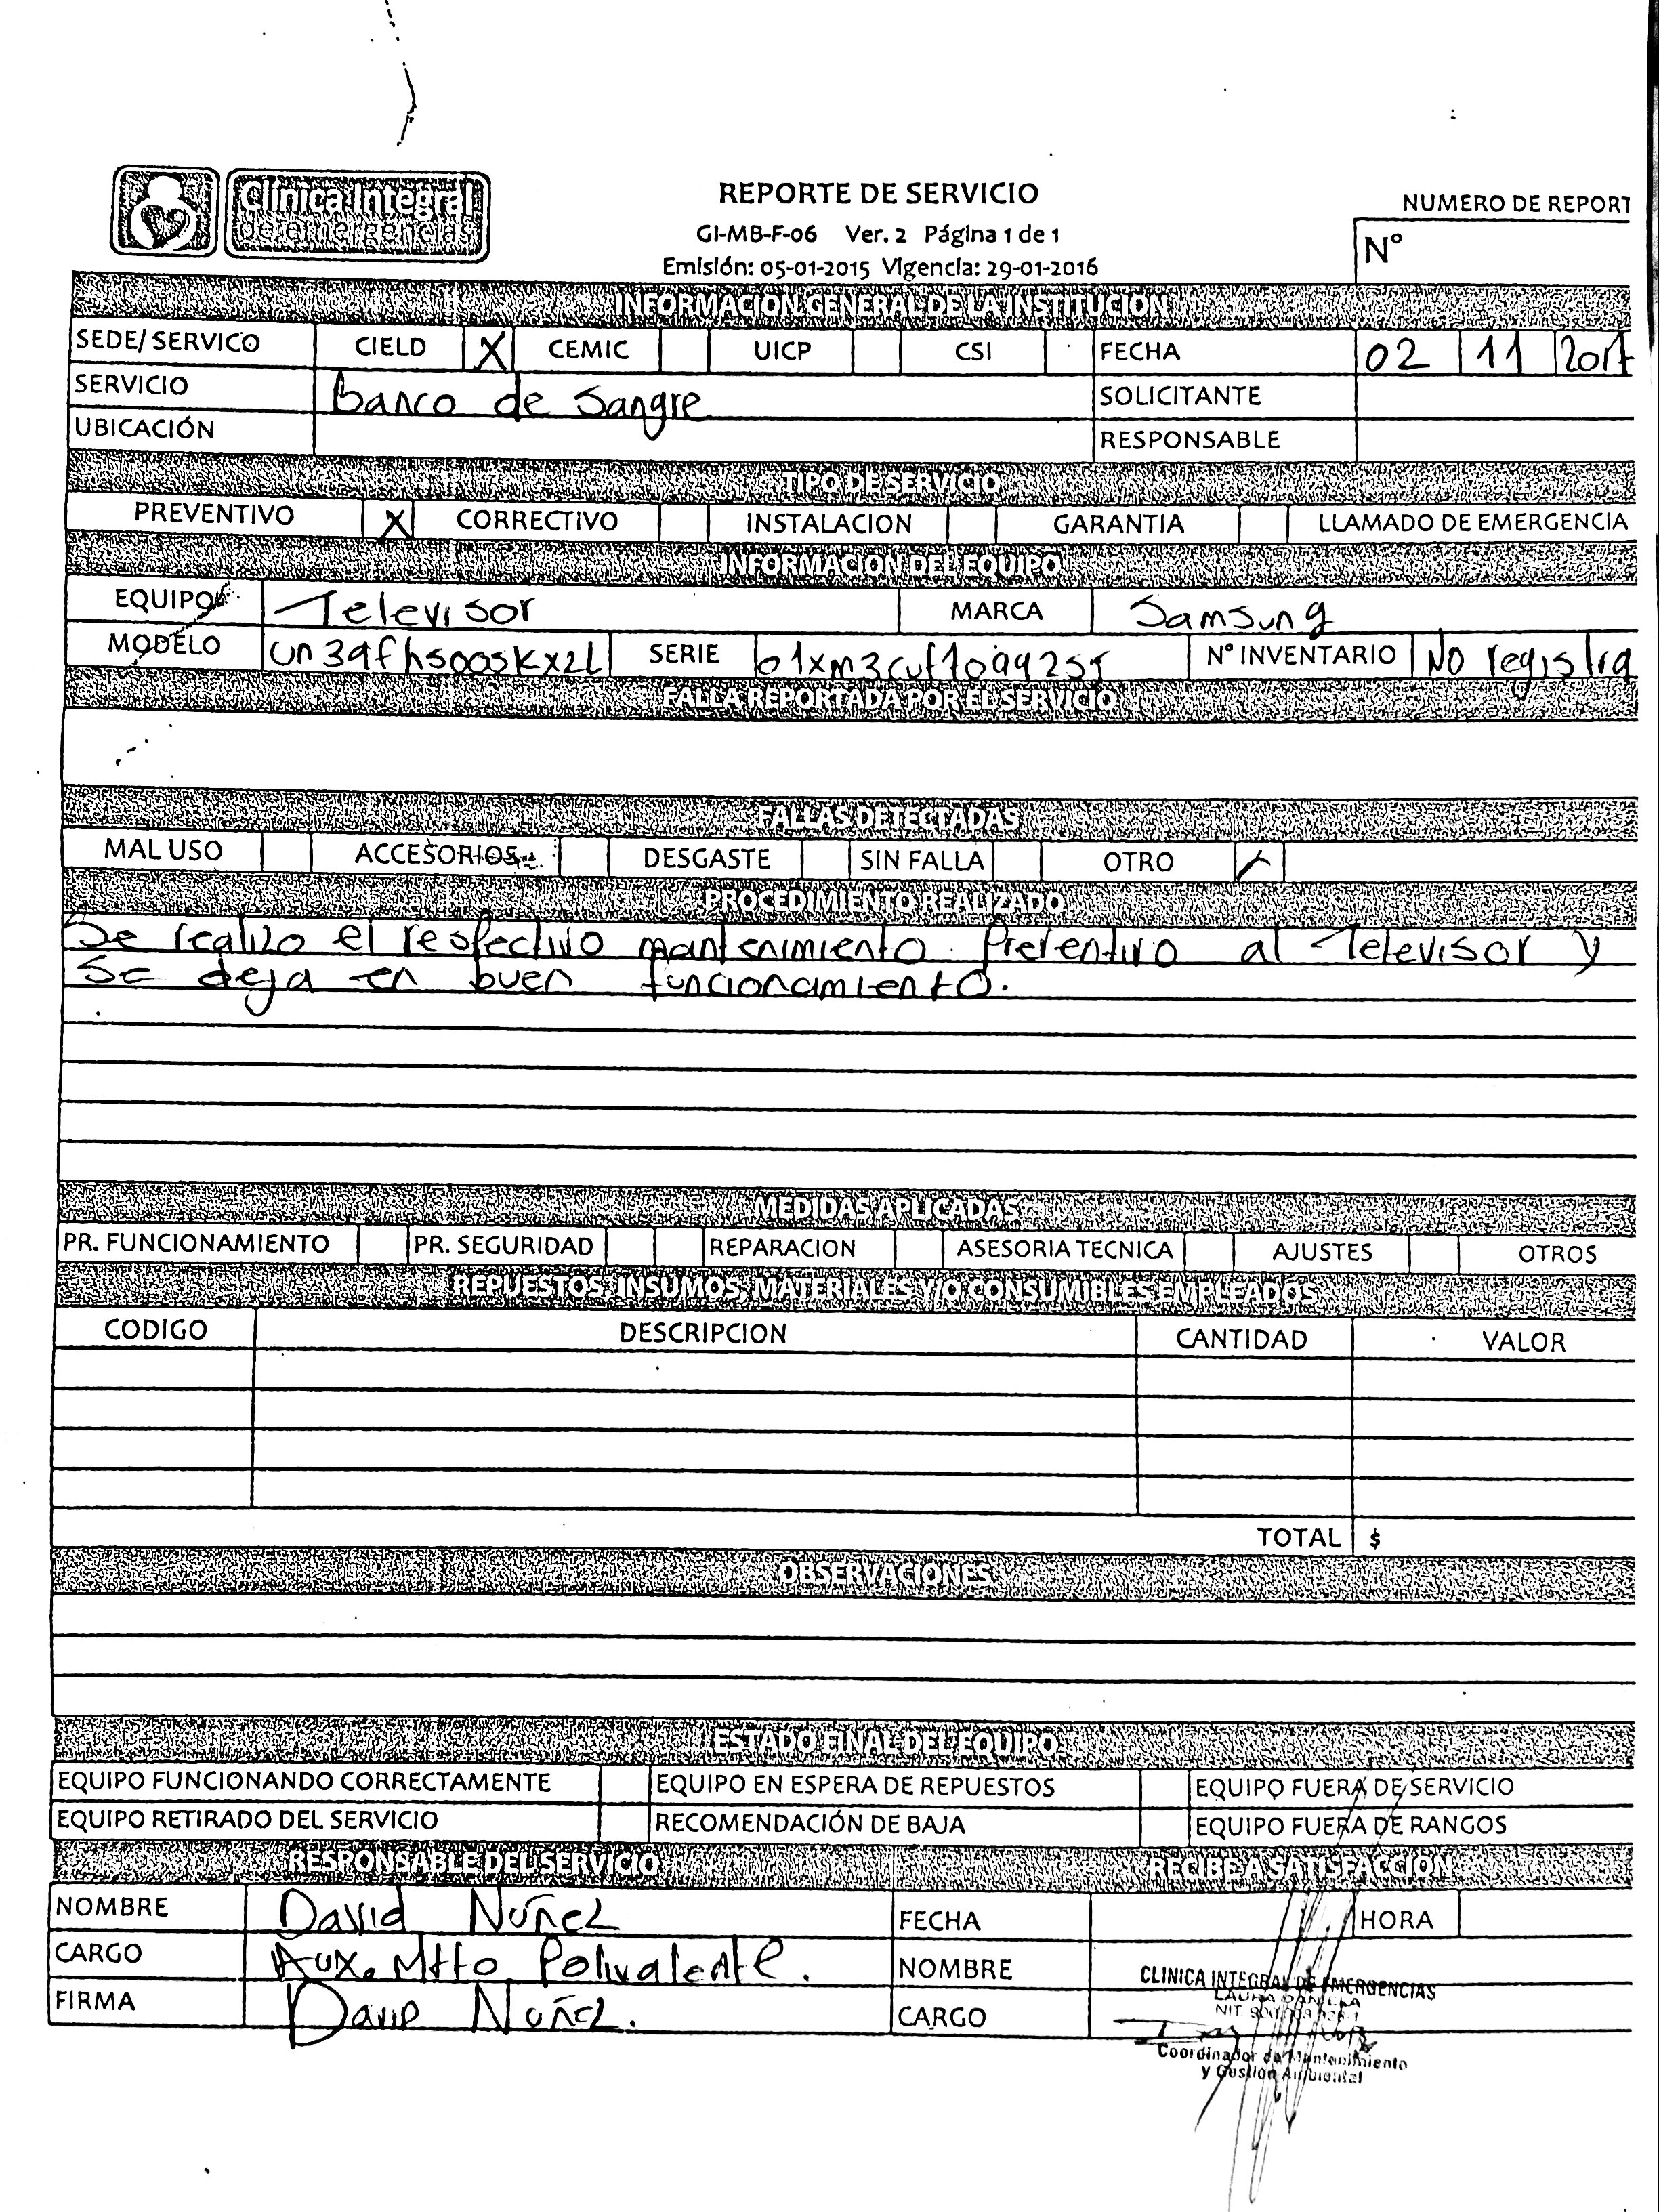 Clínica Integral
de emergencias
REPORTE DE SERVICIO
GI-MB-F-06 Ver. 2 Página 1 de 1
Emisión: 05-01-2015 Vigencia: 29-01-2016
NUMERO DE REPORT
N°
INFORMACION GENERAL DE LA INSTITUCION
SEDE/ SERVICO CIELD X CEMIC UICP CSI FECHA 02 11 2017
SERVICIO Banco de Sangre SOLICITANTE
UBICACIÓN RESPONSABLE
TIPO DE SERVICIO
PREVENTIVO X CORRECTIVO INSTALACION GARANTIA LLAMADO DE EMERGENCIA
INFORMACION DEL EQUIPO
EQUIPO Televisor MARCA Samsung
MODELO un39fh5005kxzl SERIE N° INVENTARIO No registra
FALLA REPORTADA POR EL SERVICIO
FALLAS DETECTADAS
MAL USO ACCESORIOS DESGASTE SIN FALLA OTRO
PROCEDIMIENTO REALIZADO
Se realizo el respectivo mantenimiento Preventivo al Televisor y
Se deja en buen funcionamiento.
MEDIDAS APLICADAS
PR. FUNCIONAMIENTO PR. SEGURIDAD REPARACION ASESORIA TECNICA AJUSTES OTROS
REPUESTOS, INSUMOS, MATERIALES Y/O CONSUMIBLES EMPLEADOS
CODIGO DESCRIPCION CANTIDAD VALOR
TOTAL $
OBSERVACIONES
ESTADO FINAL DEL EQUIPO
EQUIPO FUNCIONANDO CORRECTAMENTE EQUIPO EN ESPERA DE REPUESTOS EQUIPO FUERA DE SERVICIO
EQUIPO RETIRADO DEL SERVICIO RECOMENDACIÓN DE BAJA EQUIPO FUERA DE RANGOS
RESPONSABLE DEL SERVICIO RECIBE A SATISFACCION
NOMBRE David Nuñez FECHA HORA
CARGO Aux. Mtto Polivalente. NOMBRE
CLINICA INTEGRAL DE EMERGENCIAS
LAURA DANIELA
NIT.
FIRMA David Nuñez. CARGO
Coordinador de Mantenimiento
y Gestion Ambiental